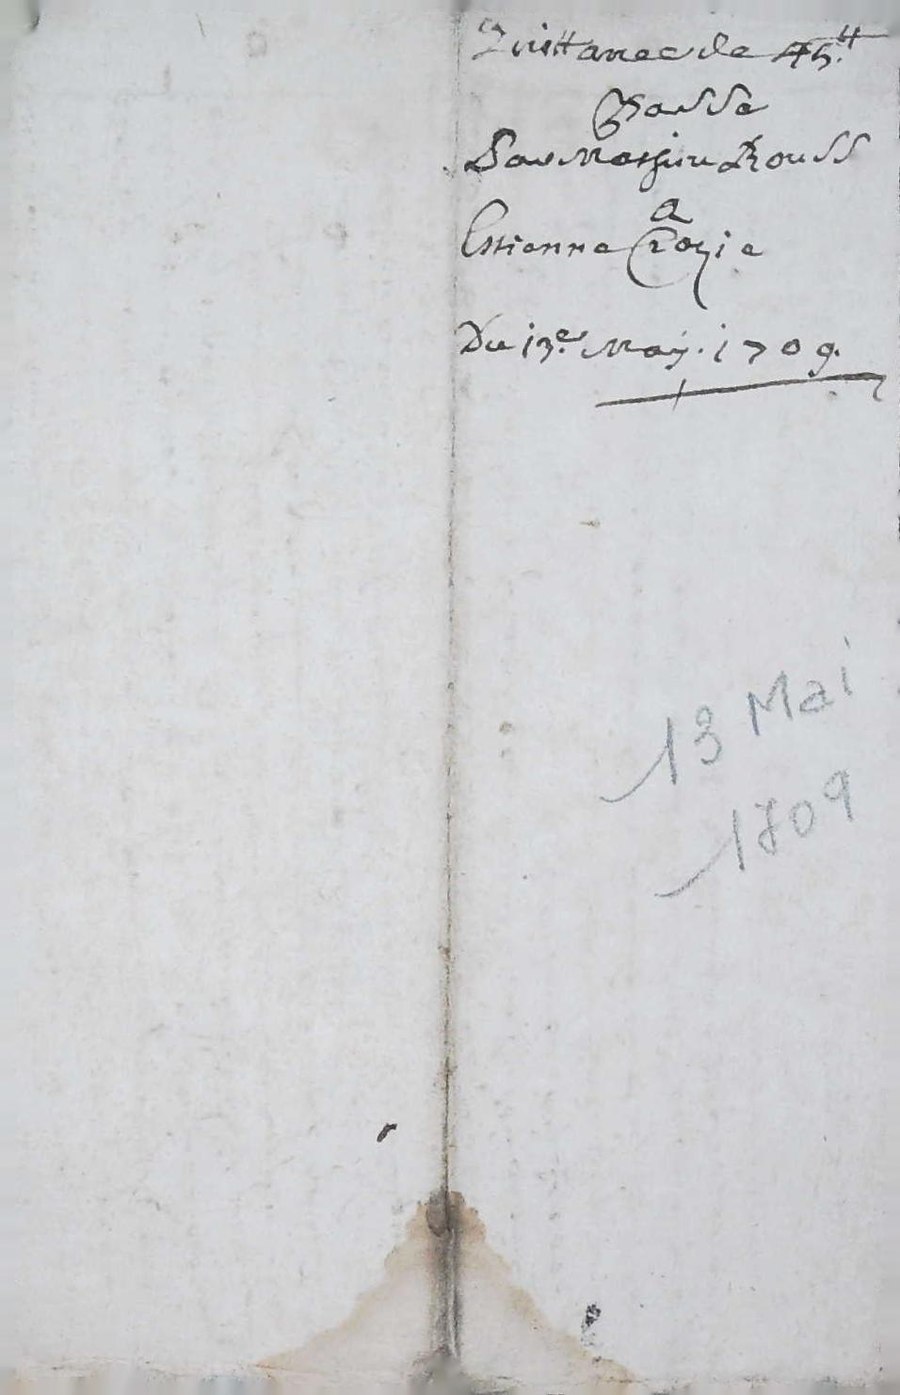 Quittance de 45.tt
Passée
Par Massieu Rouss
a
Estienne Crozie
Du 13.e May. 1709.
13 Mai
1709